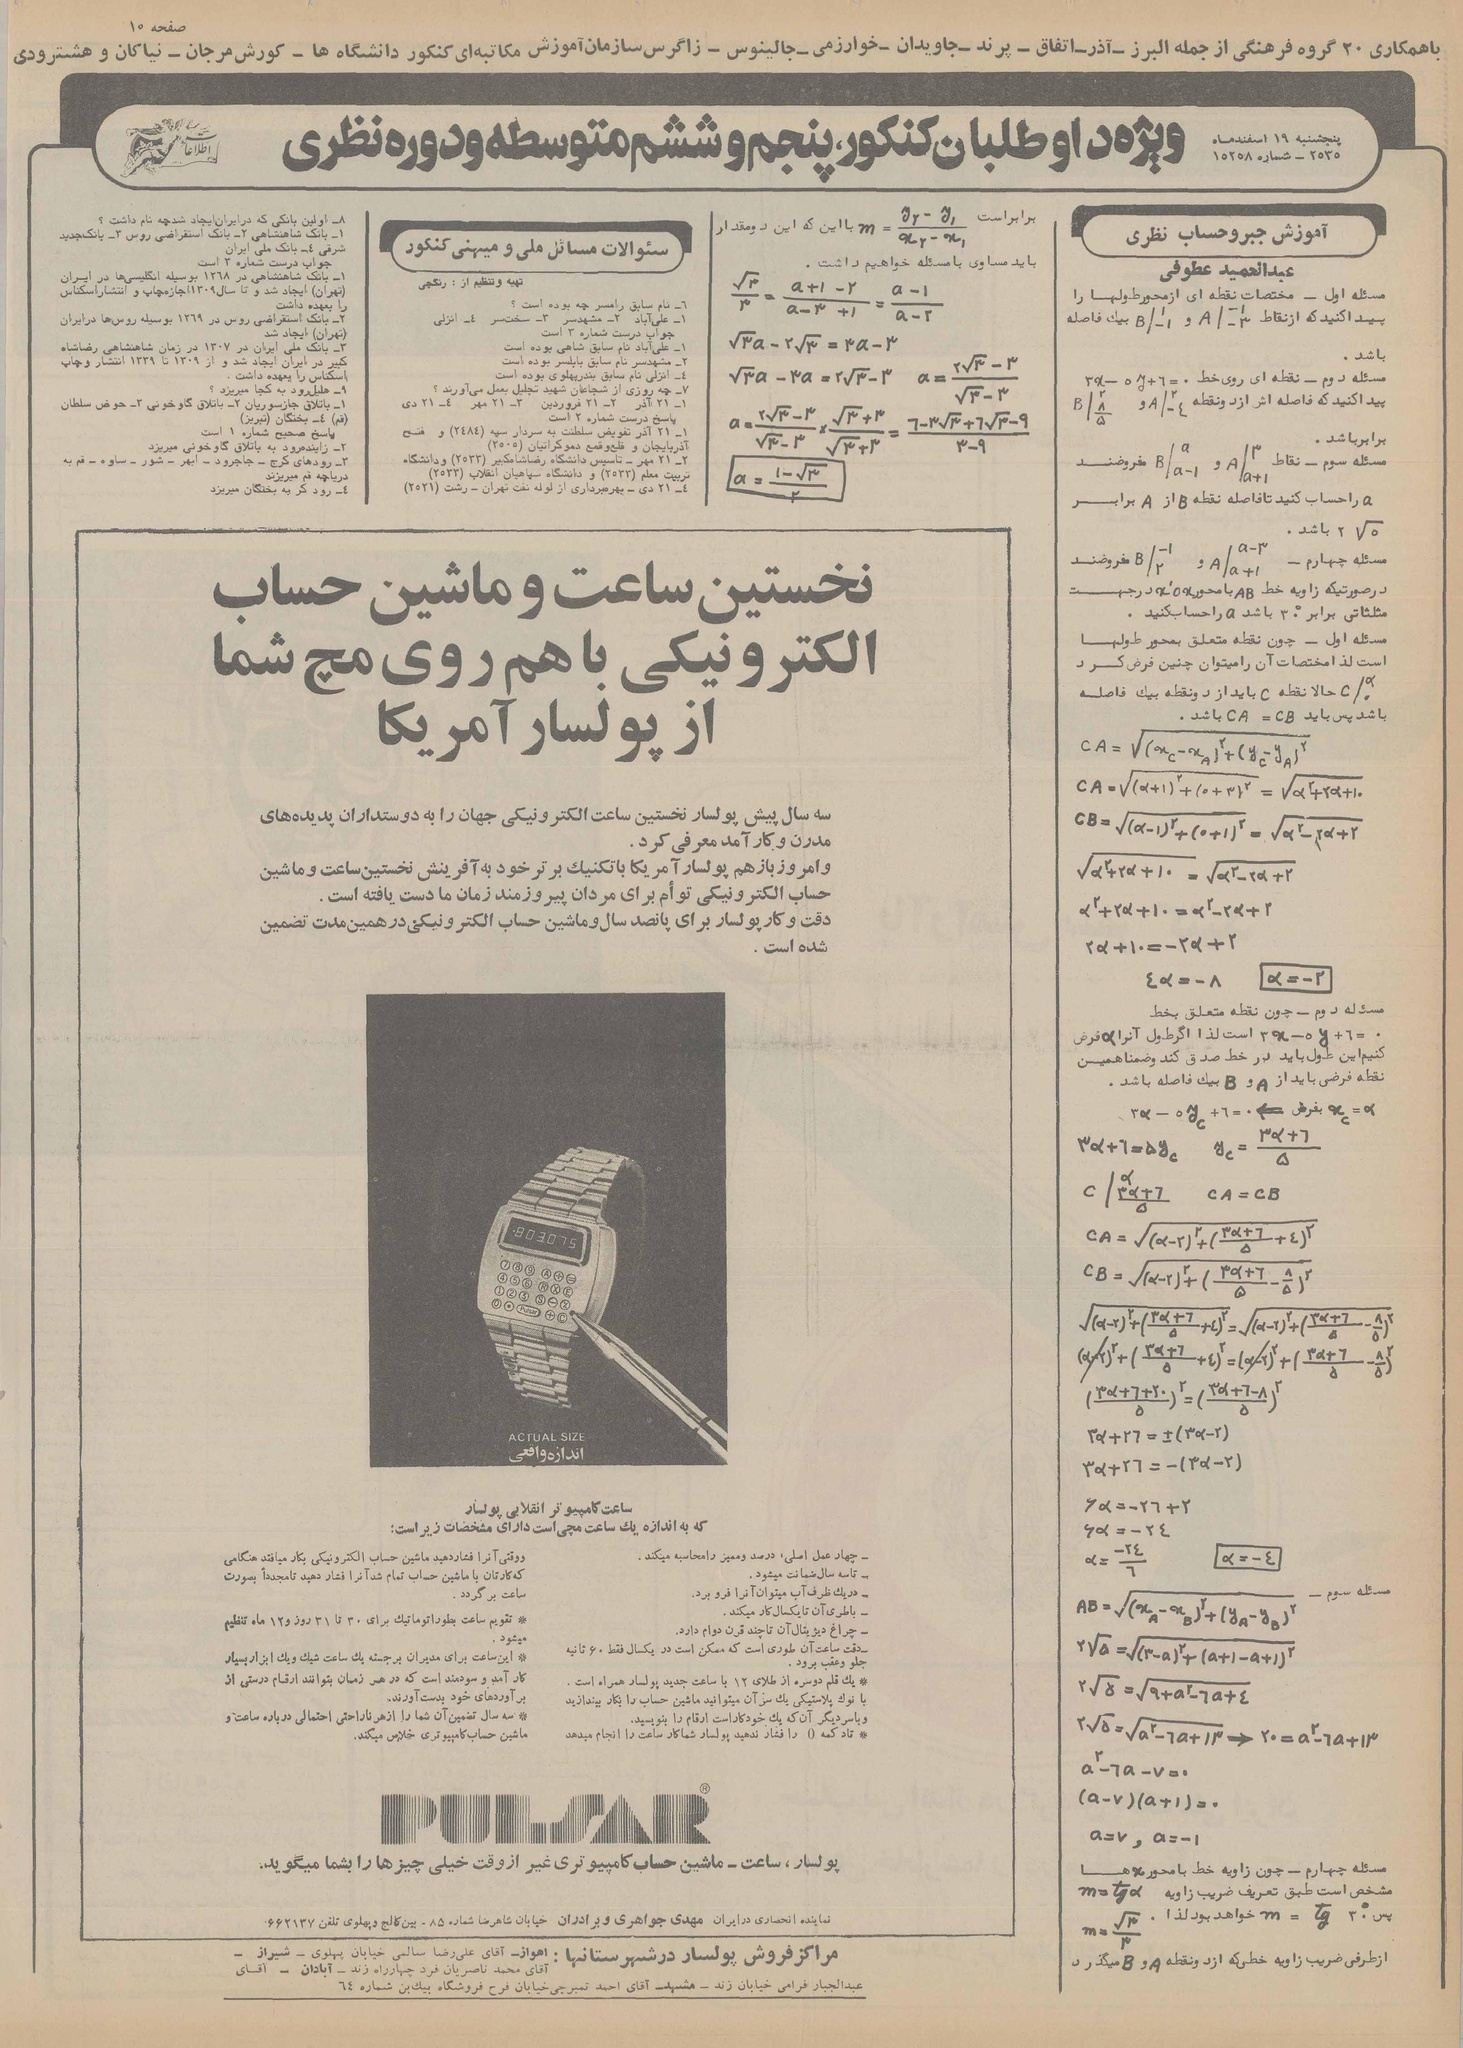 صفحه ۱۰
باهمکاری ۲۰ گروه فرهنگی از جمله البرز ـ آذر ـ اتفاق ـ پرند ـ جاویدان ـ خوارزمی ـ جالینوس ـ زاگرس سازمان آموزش مکاتبه‌ای کنکور دانشگاه ها ـ کورش مرجان ـ نیاکان و هشترودی
پنجشنبه ۱۹ اسفندماه
۲۵۳۵ ـ شماره ۱۵۲۵۸
ویژه داوطلبان کنکور، پنجم و ششم متوسطه و دوره نظری
اطلاعات
آموزش جبر و حساب نظری
عبدالحمید عطوفی
مسئله اول ـ مختصات نقطه ای از محور طولها را
پیدا کنید که از نقاط A/−۱ −۳ و B/۱ −۱ بیك فاصله
باشد .
مسئله دوم ـ نقطه ای روی خط ۳x − ۵y + ۶ = ۰
پیدا کنید که فاصله اش از دو نقطه A/۲ −۴ و B/۲ ۸/۵
برابر باشد .
مسئله سوم ـ نقاط A/۳ a+۱ و B/a a−۱ مفروضند
a را حساب کنید تا فاصله نقطه B از A برابر
۲√۵ باشد .
مسئله چهارم ـ A/a−۳ a+۱ و B/−۱ ۲ مفروضند
در صورتیکه زاویه خط AB با محور x'ox در جهت
مثلثاتی برابر ۳۰° باشد a را حساب کنید .
مسئله اول ـ چون نقطه متعلق بمحور طولها
است لذا مختصات آن را میتوان چنین فرض کرد
C/α ۰ حالا نقطه C باید از دو نقطه بیك فاصله
باشد پس باید CA = CB باشد .
CA = √(x_C − x_A)² + (y_C − y_A)²
CA = √(α+۱)² + (۰+۳)² = √α²+۲α+۱۰
CB = √(α−۱)² + (۰+۱)² = √α²−۲α+۲
√α²+۲α+۱۰ = √α²−۲α+۲
α²+۲α+۱۰ = α²−۲α+۲
۲α+۱۰ = −۲α+۲
۴α = −۸ α = −۲
مسئله دوم ـ چون نقطه متعلق بخط
۳x − ۵y + ۶ = ۰ است لذا اگر طول آنرا α فرض
کنیم این طول باید در خط صدق کند و ضمنا همین
نقطه فرضی باید از A و B بیك فاصله باشد .
x_C = α بفرض ⇐ ۳α − ۵y_C + ۶ = ۰
۳α+۶ = ۵y_C y_C = (۳α+۶)/۵
C/α (۳α+۶)/۵ CA = CB
CA = √(α−۲)² + ((۳α+۶)/۵ + ۴)²
CB = √(α−۲)² + ((۳α+۶)/۵ − ۸/۵)²
√(α−۲)² + ((۳α+۶)/۵ + ۴)² = √(α−۲)² + ((۳α+۶)/۵ − ۸/۵)²
(α−۲)² + ((۳α+۶)/۵ + ۴)² = (α−۲)² + ((۳α+۶)/۵ − ۸/۵)²
((۳α+۶+۲۰)/۵)² = ((۳α+۶−۸)/۵)²
۳α+۲۶ = ±(۳α−۲)
۳α+۲۶ = −(۳α−۲)
۶α = −۲۶+۲
۶α = −۲۴
α = −۲۴/۶ α = −۴
مسئله سوم ـ
AB = √(x_A − x_B)² + (y_A − y_B)²
۲√۵ = √(۳−a)² + (a+۱−a+۱)²
۲√۵ = √۹+a²−۶a+۴
۲√۵ = √a²−۶a+۱۳ → ۲۰ = a²−۶a+۱۳
a²−۶a−۷ = ۰
(a−۷)(a+۱) = ۰
a=۷ و a=−۱
مسئله چهارم ـ چون زاویه خط با محور x ها
مشخص است طبق تعریف ضریب زاویه m = tgα
پس m = tg ۳۰° خواهد بود لذا . m = √۳/۳
از طرفی ضریب زاویه خطی که از دو نقطه A و B میگذرد
برابر است m = (y₂ − y₁)/(x₂ − x₁) با این که این دو مقدار
باید مساوی با مسئله خواهیم داشت .
√۳/۳ = (a+۱−۲)/(a−۳+۱) = (a−۱)/(a−۲)
√۳a − ۲√۳ = ۳a−۳
√۳a − ۳a = ۲√۳−۳ a = (۲√۳−۳)/(√۳−۳)
a = (۲√۳−۳)/(√۳−۳) × (√۳+۳)/(√۳+۳) = (۶−۳√۳+۶√۳−۹)/(۳−۹)
a = (۱−√۳)/۲
سئوالات مسائل ملی و میهنی کنکور
تهیه و تنظیم از : رنگچی
۶ـ نام سابق رامسر چه بوده است ؟
۱ـ علی‌آباد ۲ـ مشهدسر ۳ـ سخت‌سر ۴ـ انزلی
جواب درست شماره ۳ است
۱ـ علی‌آباد نام سابق شاهی بوده است
۲ـ مشهدسر نام سابق بابلسر بوده است
۴ـ انزلی نام سابق بندرپهلوی بوده است
۷ـ چه روزی از شجاعان شهید تجلیل بعمل می‌آورند ؟
۱ـ ۲۱ آذر ۲ـ ۲۱ فروردین ۳ـ ۲۱ مهر ۴ـ ۲۱ دی
پاسخ درست شماره ۲ است
۱ـ ۲۱ آذر تفویض سلطنت به سردار سپه (۲۴۸۴) و فتح
آذربایجان و قلع‌وقمع دموکراتیان (۲۵۰۵)
۲ـ ۲۱ مهر ـ تاسیس دانشگاه رضاشاه‌کبیر (۲۵۳۳) و دانشگاه
تربیت معلم (۲۵۳۳) و دانشگاه سپاهیان انقلاب (۲۵۳۳)
۴ـ ۲۱ دی ـ بهره‌برداری از لوله نفت تهران ـ رشت (۲۵۲۱)
۸ـ اولین بانکی که در ایران ایجاد شد چه نام داشت ؟
۱ـ بانك شاهنشاهی ۲ـ بانك استقراضی روس ۳ـ بانك جدید
شرقی ۴ـ بانك ملی ایران
جواب درست شماره ۳ است
۱ـ بانك شاهنشاهی در ۱۲۶۸ بوسیله انگلیسی‌ها در ایران
(تهران) ایجاد شد و تا سال ۱۳۰۹ اجازه چاپ و انتشار اسکناس
را بعهده داشت
۲ـ بانك استقراضی روس در ۱۲۶۹ بوسیله روس‌ها در ایران
(تهران) ایجاد شد
۳ـ بانك ملی ایران در ۱۳۰۷ در زمان شاهنشاهی رضاشاه
کبیر در ایران ایجاد شد و از ۱۳۰۹ تا ۱۳۳۹ انتشار و چاپ
اسکناس را بعهده داشت .
۹ـ هلیل‌رود به کجا میریزد ؟
۱ـ باتلاق جازسوریان ۲ـ باتلاق گاوخونی ۳ـ حوض سلطان
(قم) ۴ـ بختگان (نیریز)
پاسخ صحیح شماره ۱ است
۲ـ زاینده‌رود به باتلاق گاوخونی میریزد
۳ـ رودهای کرج ـ جاجرود ـ ابهر ـ شور ـ ساوه ـ قم به
دریاچه قم میریزند
۴ـ رود کر به بختگان میریزد
نخستین ساعت و ماشین حساب
الکترونیکی با هم روی مچ شما
از پولسار آمریکا
سه سال پیش پولسار نخستین ساعت الکترونیکی جهان را به دوستداران پدیده‌های
مدرن و کارآمد معرفی کرد .
و امروز باز هم پولسار آمریکا با تکنیك برتر خود به آفرینش نخستین ساعت و ماشین
حساب الکترونیکی توأم برای مردان پیروزمند زمان ما دست یافته است .
دقت و کار پولسار برای پانصد سال و ماشین حساب الکترونیکی در همین مدت تضمین
شده است .
803.075
7 8 9 A ÷ =
4 5 6 R × E
1 2 3 S − %
0 • Pulsar + C
ACTUAL SIZE
اندازه واقعی
ساعت کامپیوتر انقلابی پولسار
که به اندازه یك ساعت مچی است دارای مشخصات زیر است:
ـ چهار عمل اصلی، درصد و ممیز را محاسبه میکند .
ـ تا سه سال ضمانت میشود .
ـ در یك ظرف آب میتوان آنرا فرو برد .
ـ باطری آن تا یکسال کار میکند .
ـ چراغ دیژیتال آن تا چند قرن دوام دارد .
ـ دقت ساعت آن طوری است که ممکن است در یکسال فقط ۶۰ ثانیه
جلو و عقب برود .
* یك قلم دوسره از طلای ۱۲ با ساعت جدید پولسار همراه است .
با نوك پلاستیکی یك سر آن میتوانید ماشین حساب را بکار بیندازید
و با سر دیگر آن که یك خودکار است ارقام را بنویسید .
* تا دکمه () را فشار ندهید پولسار شما کار ساعت را انجام میدهد
و وقتی آنرا فشار دهید ماشین حساب الکترونیکی بکار میافتد هنگامی
که کارتان با ماشین حساب تمام شد آنرا فشار دهید تا مجدداً بصورت
ساعت برگردد .
* تقویم ساعت بطور اتوماتیك برای ۳۰ تا ۳۱ روز و ۱۲ ماه تنظیم
میشود .
* این ساعت برای مدیران برجسته یك ساعت شیك و یك ابزار بسیار
کارآمد و سودمند است که در هر زمان بتوانند ارقام درستی از
برآوردهای خود بدست آورند .
* سه سال تضمین آن شما را از هر ناراحتی احتمالی درباره ساعت و
ماشین حساب کامپیوتری خلاص میکند .
PULSAR®
پولسار ، ساعت ـ ماشین حساب کامپیوتری غیر از وقت خیلی چیزها را بشما میگوید.
نماینده انحصاری در ایران مهدی جواهری و برادران خیابان شاهرضا شماره ۸۵ ـ بین کالج و پهلوی تلفن ۶۶۲۱۳۷
مراکز فروش پولسار در شهرستانها : اهواز ـ آقای علی‌رضا سالمی خیابان پهلوی ـ شیراز ـ
آقای محمد ناصریان فرد چهارراه زند ـ آبادان ـ آقای
عبدالجبار فرامی خیابان زند ـ مشهد ـ آقای احمد تمیرچی خیابان فرح فروشگاه بیك بن شماره ۶۴